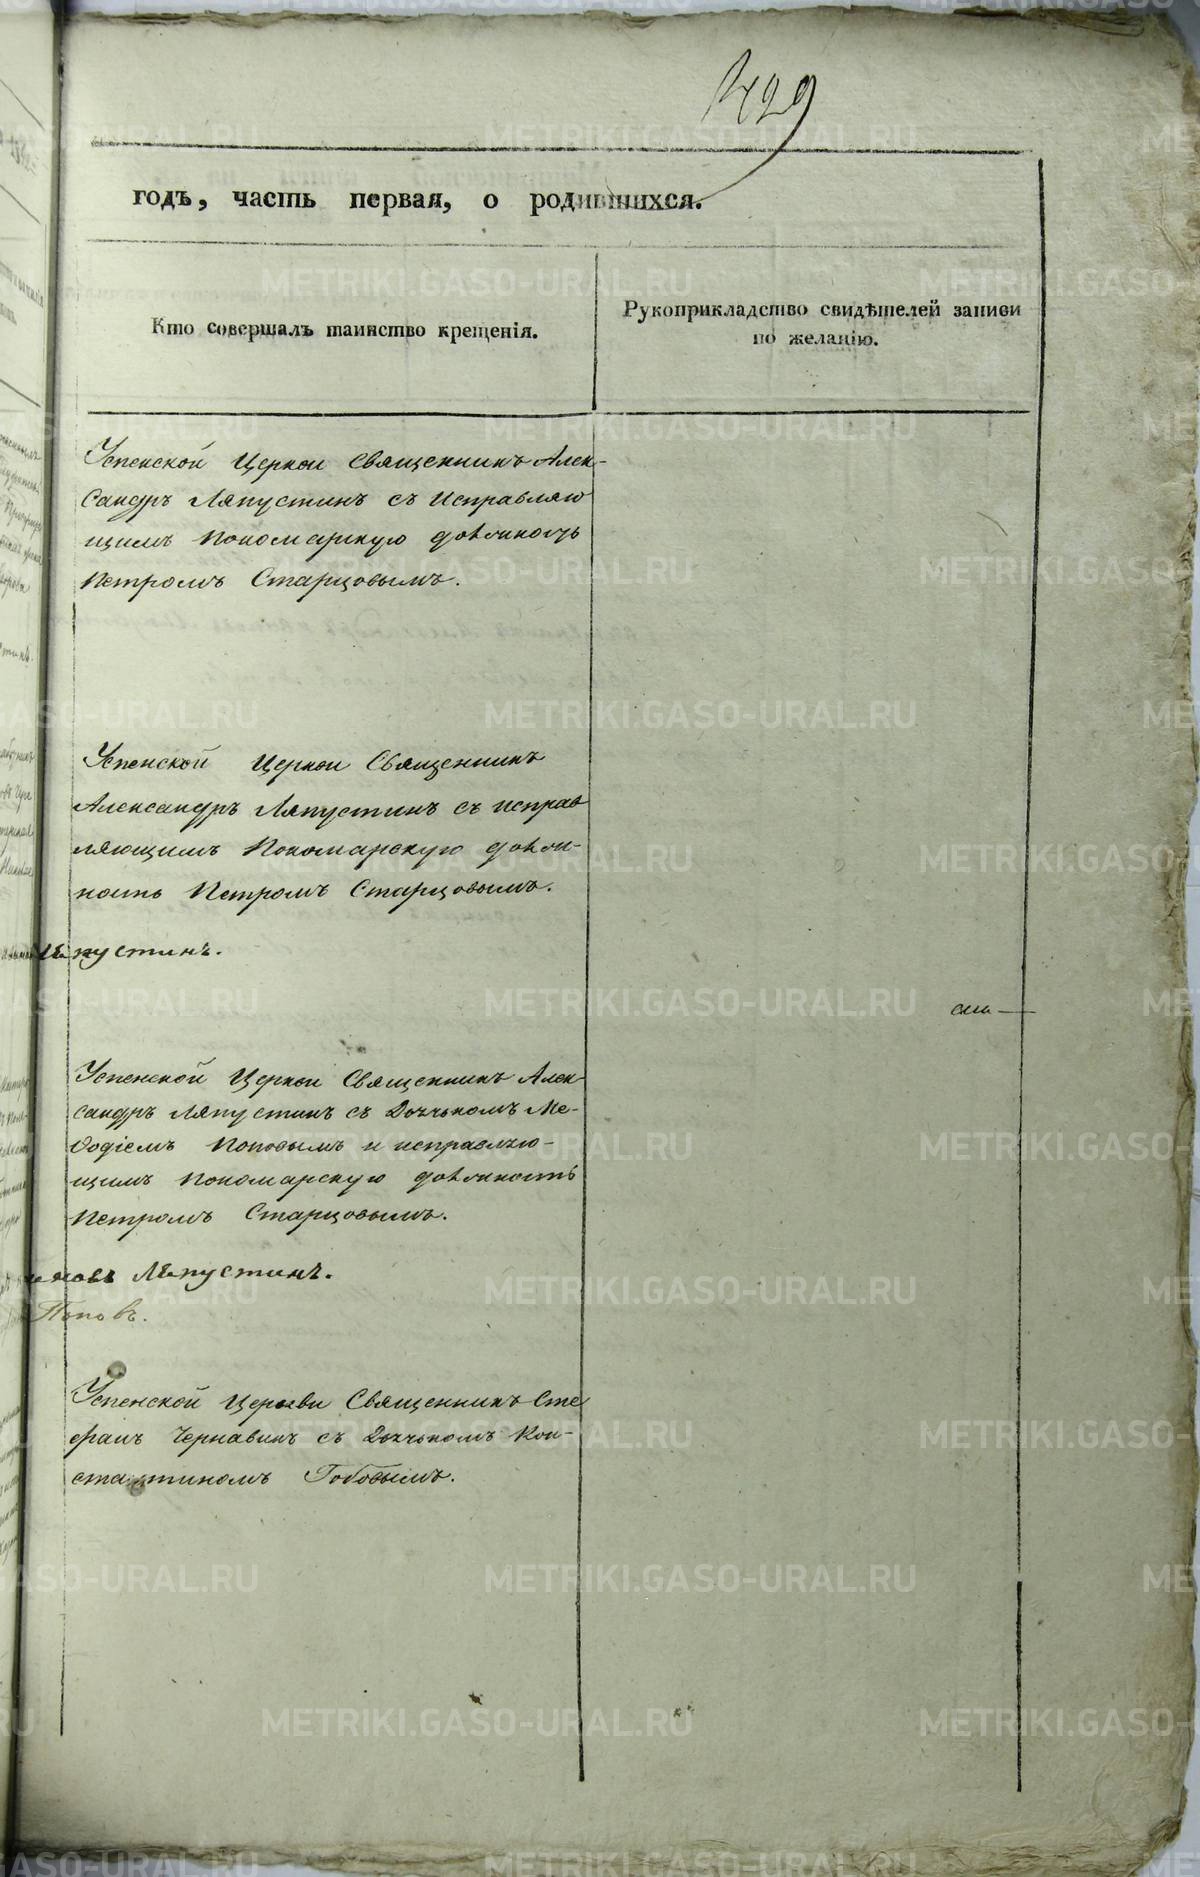 429
годъ, часть первая, о родившихся.
Кто совершалъ таинство крещенія.
Рукоприкладство свидѣтелей записи
по желанію.
Успенской Церкви Священникъ Алек-
сандръ Ляпустинъ съ исправляю
щимъ Пономарскую должность
Петромъ Старцовымъ.
Успенской Церкви Священникъ
Александръ Ляпустинъ съ исправ
ляющимъ Пономарскую долж-
ность Петромъ Старцовымъ.
Ляпустинъ.
Успенской Церкви Священникъ Алек-
сандръ Ляпустинъ съ Дьячькомъ Ме-
ѳодіемъ Поповымъ и исправляю-
щимъ Пономарскую должность
Петромъ Старцовымъ.
Ляпустинъ.
Поповъ.
Успенской Церкви Священникъ Сте
фанъ Чернавинъ съ Дьячькомъ Кон-
стантиномъ Гобовымъ.
METRIKI.GASO-URAL.RU